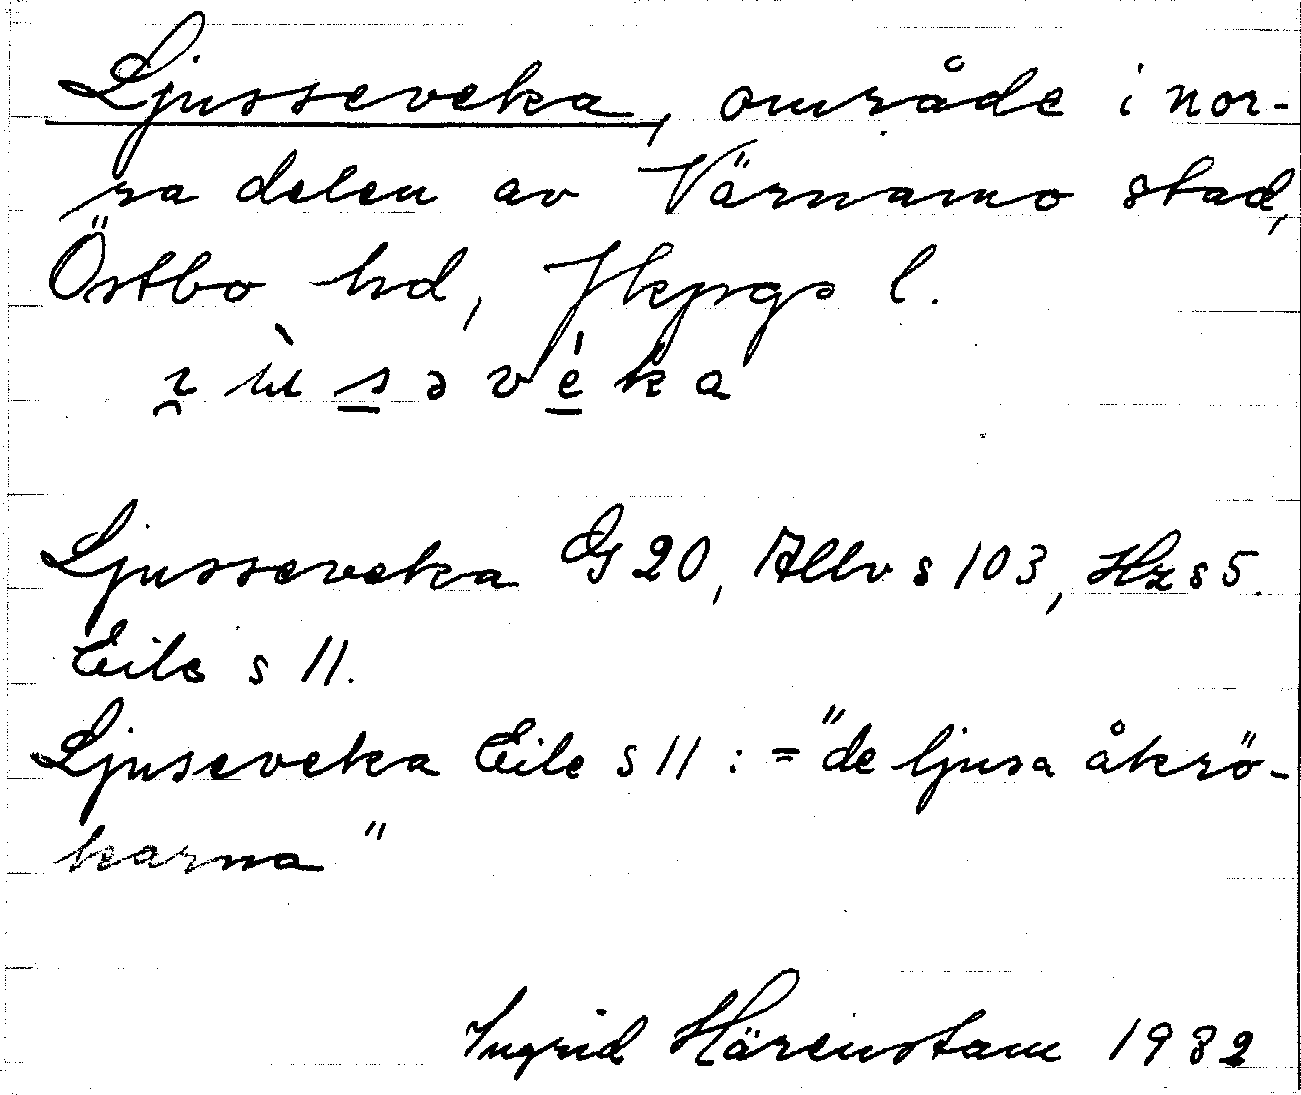 Ljusseveka, område i nor-
ra delen av Värnamo stad,
Östbo hd, Jkpgs l.
Ljusseveka G 20, Allv s 103, Hz s 5.
Eile s 11.
Ljuseveka Eile s 11 : = "de ljusa åkrö-
karna"
Ingrid Härenstam 1932